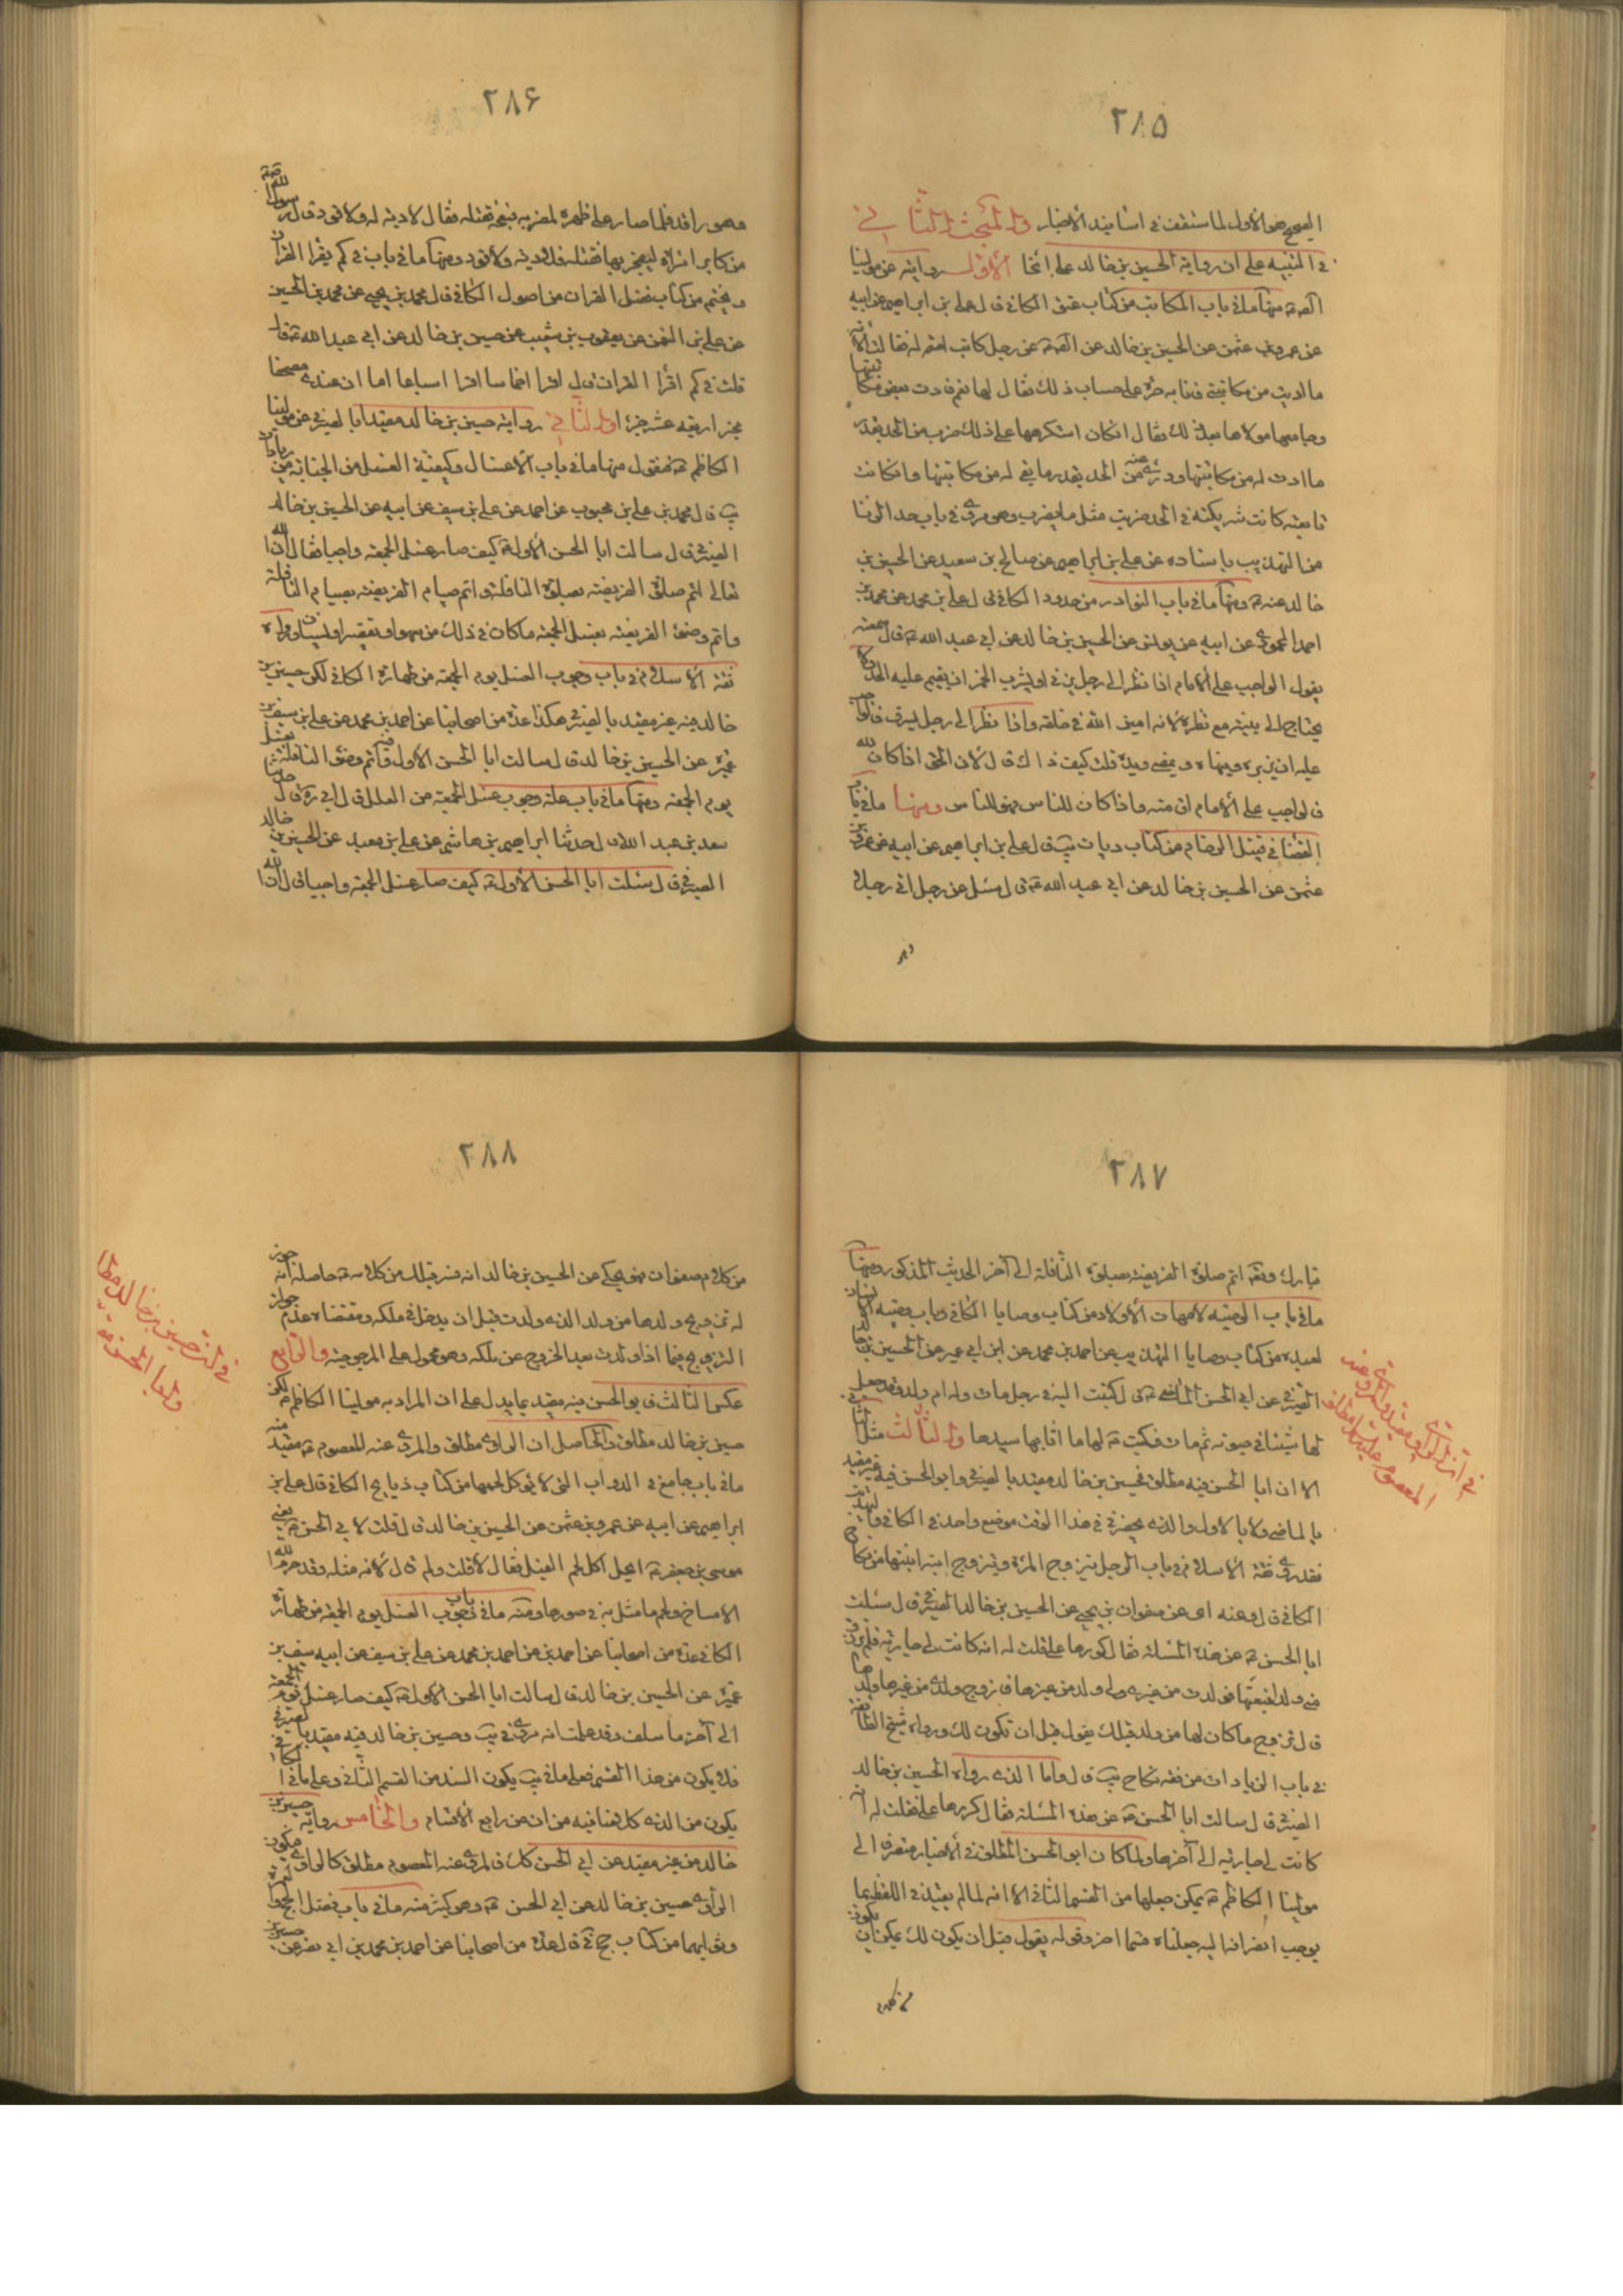 ٢٨٥
الصحيح هو الأول لما ستقف في اسانيد الأخبار والمبحث الثاني
في التنبيه على ان رواية الحسين بن خالد على انحا الأول روايته عن مولينا
منها ما في باب المكاتب من كتاب عتق الكافي قال على بن ابراهيم عن ابيه
عن عمرو بن عثمن عن الحسين بن خالد عن عن رجل كاتب امة له فقالت الأمة
ما اديت من مكاتبتي فانا به حرة على حساب ذلك فقال لها نعم فادت بعض مكاتبتها
وجامعها مولاها بعد ذلك فقال ان كان استكرهها على ذلك ضرب من الحد بقدر
ما ادت له من مكاتبتها ودرئ عنه من الحد بقدر ما بقي له من مكاتبتها وان كانت
تابعته كانت شريكته في الحد ضربت مثل ما يضرب وهو مروي في باب حد الزنا
من التهذيب باسناده عن على بن ابراهيم عن صالح بن سعيد عن الحسين بن
خالد عنه ع ومنها ما في باب النوادر من حدود الكافي قال على بن محمد عن محمد بن
احمد المحمودي عن ابيه عن يونس عن الحسين بن خالد عن ابي عبد الله ع قال سمعته
يقول الواجب على الأمام اذا نظر الى رجل يزني او يشرب الخمر ان يقيم عليه الحد ولا
يحتاج الى بينة مع نظره لانه امين الله في خلقه واذا نظر الى رجل يسرق فالواجب
عليه ان يزبره وينهاه ويمضي ويدعه قلت كيف ذاك قال لأن الحق اذا كان لله
فالواجب على الأمام اقامته واذا كان للناس فهو للناس ومنها ما في باب
القضا في قتيل الزحام من كتاب ديات يب قال على بن ابراهيم عن ابيه عن عمرو بن
عثمن عن الحسين بن خالد عن ابي عبد الله ع قال سئل عن رجل اتى رجلا
وهو
٢٨۶
وهو راقد فلما صار على ظهره لمضربه فبعجه فقتله فقال لا دية له ولا قود قال رسول الله ص
من كابر امراة ليفجر بها فقتلته فلا دية ولا قود ومنها ما في باب في كم يقرا القران
ويختم من كتاب فضل القران من اصول الكافي قال محمد بن يحيى عن محمد بن الحسين
عن على بن النعمن عن يعقوب بن شعيب عن حسين بن خالد عن ابي عبد الله ع قال
قلت في كم اقرأ القران قال اقرا اخماسا اقرا اسباعا اما ان عندي مصحفا
مجزا اربعة عشر جزءا والثاني رواية حسين بن خالد مقيدا بالصيرفي عن مولينا
الكاظم ع فنقول منها ما في باب الأغسال وكيفية الغسل من الجنابة من زيادات
يب قال محمد بن على بن محبوب عن احمد عن على بن سيف عن ابيه عن الحسين بن خالد
الصيرفي قال سالت ابا الحسن الأول ع كيف صار غسل الجمعة واجبا فقال ان الله
تعالى اتم صلوة الفريضة بصلوة النافلة واتم صيام الفريضة بصيام النافلة
واتم وضوء الفريضة بغسل الجمعة ما كان في ذلك من سهو او تقصير او نسيان ورواه
ثقة الأسلام في باب وجوب الغسل يوم الجمعة من طهارة الكافي لكن حسين بن
خالد فيه غير مقيد بالصيرفي هكذا عدة من اصحابنا عن احمد بن محمد عن على بن سيف عن
عميرة عن الحسين بن خالد قال سالت ابا الحسن الأول وفيه واتم وضوء النافلة بغسل
يوم الجمعة ومنها ما في باب علة وجوب غسل الجمعة من العلل قال ابي ره قال حدثنا
سعد بن عبد الله قال حدثنا ابراهيم بن هاشم عن على بن معبد عن الحسين بن خالد
الصيرفي قال سئلت ابا الحسن الأول ع كيف صار غسل الجمعة واجبا قال ان الله
٢٨٧
تبارك وتعه اتم صلوة الفريضة بصلوة النافلة الى آخر الحديث المذكور ومنها
ما في باب الوصية لامهات الأولاد من كتاب وصايا الكافي وباب وصية الأنسان
لعبده من كتاب وصايا التهذيب عن احمد بن محمد عن ابن ابي عمير عن الحسين بن خالد
الصيرفي عن ابي الحسن الماضي ع قال كتبت اليه في رجل مات وله ام ولد وقد جعل
لها شيئا في حيوته ثم مات فكتب ع لها ما اثابها سيدها والثالث مثل الثاني
الا ان ابا الحسن فيه مطلق فحسين بن خالد مقيد بالصيرفي وابو الحسن فيه غير مقيد
بالماضي ولا بالاول والذي يحضرني في هذا الوقت موضع واحد في الكافي والتهذيب
فقد روى ثقة الأسلام في باب الرجل يتزوج المراة ويزوج ابنه ابنتها من نكاح
الكافي قال وعنه اى عن صفوان بن يحيى عن الحسين بن خالد الصيرفي قال سئلت
ابا الحسن ع عن هذه المسئلة فقال كررها على قلت له انه كانت لي جارية فلم ترزق
مني ولدا فبعتها فولدت من غيري ولي ولد من غيرها فازوج ولدي من غيرها ولدها
قال تزوج ما كان لها من ولد قبلك يقول قبل ان تكون لك ورواه شيخ الطائفة
في باب الزيادات من فقه نكاح يب قال واما الذي رواه الحسين بن خالد
الصيرفي قال سالت ابا الحسن ع عن هذه المسئلة فقال كررها على فقلت له انه
كانت لي جارية الى آخرها ولما كان ابو الحسن المطلق في الأخبار منصرفا الى
مولينا الكاظم ع يمكن جعلها من القسم الثاني الا انه لما لم يقيد في اللفظ بما
يوجب انصرافه اليه جعلناه قسما اخر وقوله يقول قبل ان يكون لك يمكن ان يكون
في انه الراوي مقيد والمروي عنه
المعصوم عليه السلام مطلق
من كلام
٢٨٨
من كلام صفوان فهو يحكي عن الحسين بن خالد انه فسر قبلك من كلامه ع حاصله انه جوز
له تزويج ولدها من ولد الذي ولدت قبل ان يدخل في ملكه ومقتضاه عدم جواز
التزويج فيما اذا ولدت بعد الخروج عن ملكه وهو محمول على المرجوحية والرابع
عكس الثالث فابو الحسن فيه مقيد بما يدل على ان المراد به مولينا الكاظم ع لكن
حسين بن خالد مطلق والحاصل ان الراوي مطلق والمروي عنه المعصوم ع مقيد منه
ما في باب جامع في الدواب التي لا يؤكل لحمها من كتاب ذبايح الكافي قال على بن
ابراهيم عن ابيه عن عمرو بن عثمن عن الحسين بن خالد قال قلت لابي الحسن ع يعني
موسى بن جعفر ع ايحل اكل لحم الفيل فقال لا قلت ولم قال لأنه مثلة وقد حرم الله
الامساخ ولحم ما مثل به في صورها ومنه ما في باب وجوب الغسل يوم الجمعة من طهارة
الكافي عدة من اصحابنا عن احمد بن محمد عن على بن سيف عن ابيه سيف بن
عميرة عن الحسين بن خالد قال سالت ابا الحسن الأول ع كيف صار غسل يوم الجمعة
الى آخر ما سلف وقد علمت انه مروي في يب وحسين بن خالد فيه مقيد بالصيرفي
فلا يكون من هذا القسم فعلى ما في يب يكون السند من القسم الثاني وعلى ما في الكافي
يكون من الذي كلامنا فيه من انه من رابع الأقسام والخامس رواية حسين بن
خالد من غير مقيد عن ابي الحسن كك فالمروي عنه المعصوم مطلق كالراوي فيكون
الراوي حسين بن خالد عن ابي الحسن ع وهو كثير منه ما في باب فضل الحج والعمرة
وثوابهما من كتاب حج في قال عدة من اصحابنا عن احمد بن محمد بن ابي نصر عن حسين
في رواية حسين بن خالد مطلقا
وابا الحسن ع